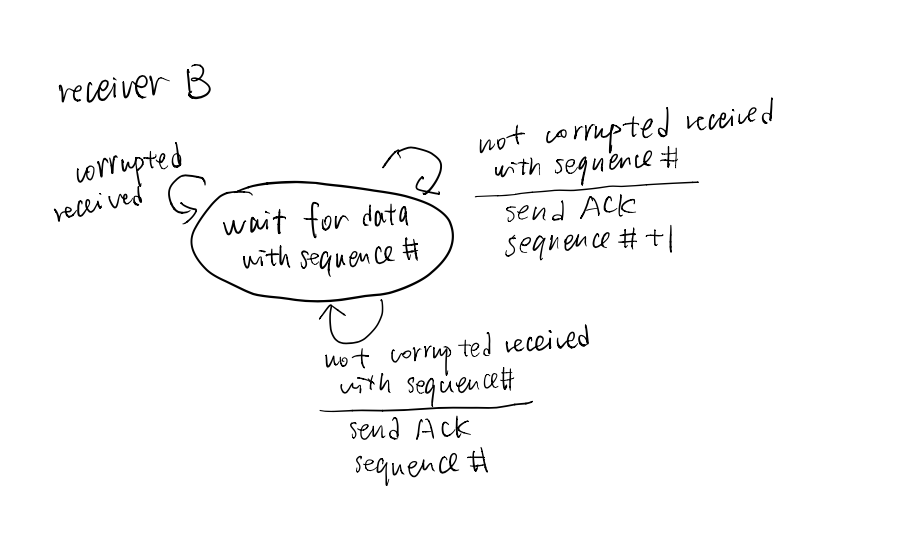 receiver B
corrupted
received
wait for data
with sequence #
not corrupted received
with sequence #
send ACK
sequence # +1
not corrupted received
with sequence #
send ACK
sequence #